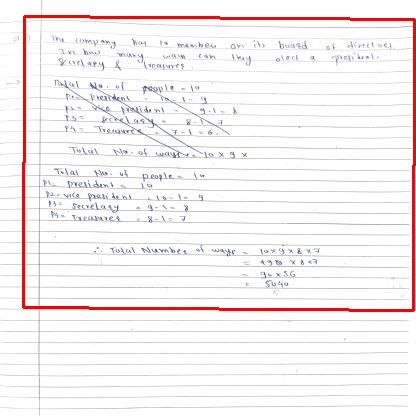 The company has 10 members on its board of directors.
In how many ways can they elect a president,
secretary & treasurer.
Total No. of people = 10
P1 = president = 10 - 1 = 9
P2 = vice president = 9 - 1 = 8
P3 = secretary = 8 - 1 = 7
P4 = Treasurer = 7 - 1 = 6.
Total No. of ways = 10 × 9 ×
Total No. of people = 10
P1 = president = 10
P2 = vice president = 10 - 1 = 9
P3 = secretary = 9 - 1 = 8
P4 = Treasures = 8 - 1 = 7
∴ Total Number of ways = 10 × 9 × 8 × 7
= × 8 × 7
= 90 × 56
= 5040